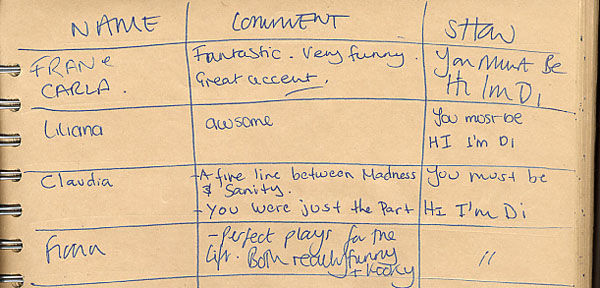 NAME COMMENT SHOW
FRAN & Fantastic. Very funny. You Must Be
CARLA. Great accent. Hi I'm Di
Liliana awsome You must be
HI I'm Di
Claudia - A fine line between Madness You must be
& Sanity.
- You were just the Part HI I'm Di
Fiona - Perfect plays for the "
Both really funny
+ Kooky